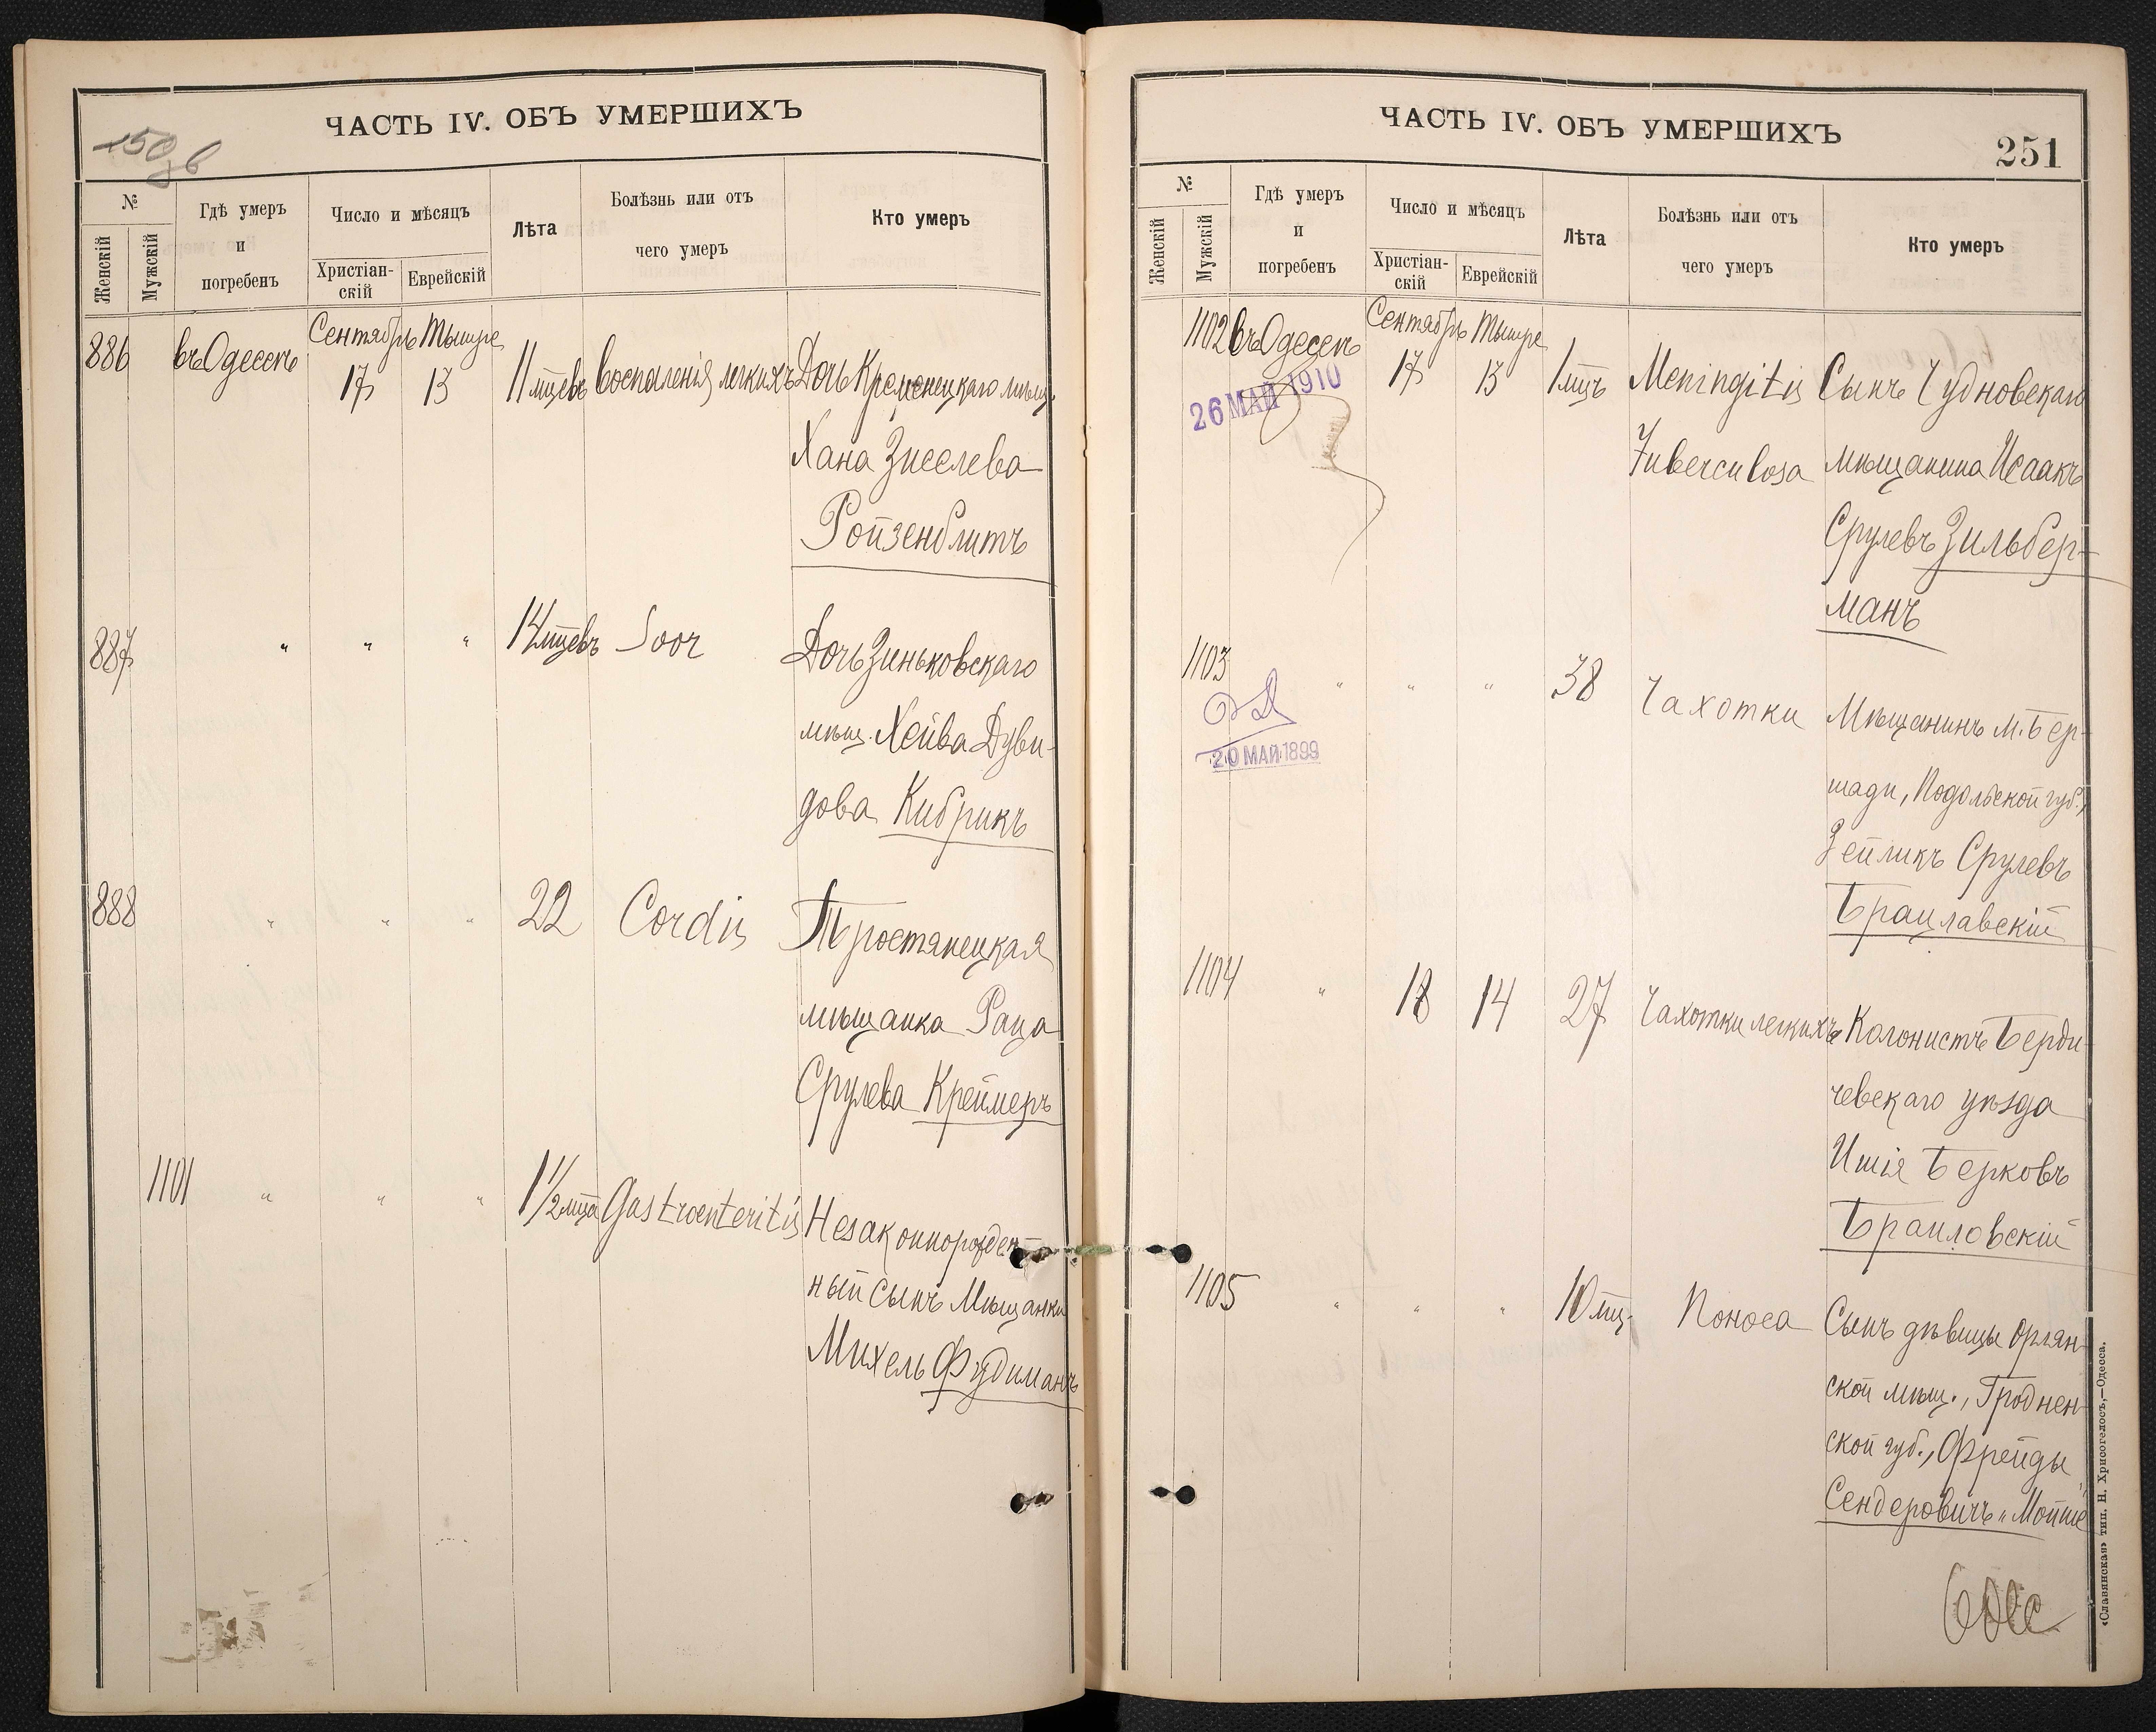 150 об
ЧАСТЬ IV. ОБЪ УМЕРШИХЪ
№
Женскій
Мужскій
Гдѣ умеръ
и
погребенъ
Число и мѣсяцъ
Христіан-
скій
Еврейскій
Лѣта
Болѣзнь или отъ
чего умеръ
Кто умеръ
886 въ Одессѣ Сентябрь 17 Тышре 13 11 мцевъ воспаленія легкихъ Дочь Кременецкаго мѣщ.
Хана Зиселева
Ройзенблитъ
887 " " " 14 мцевъ Soor Дочь Зиньковскаго
мѣщ. Хейва Дуви-
дова Кибрикъ
888 " " " 22 Cordis Тростянецкая
мѣщанка Раца
Срулева Креймеръ
1101 " " " 1 1/2 мца Gastroenteritis Незаконнорожден-
ный сынъ Мѣщанки
Михель Фудиманъ
ЧАСТЬ IV. ОБЪ УМЕРШИХЪ
251
№
Женскій
Мужскій
Гдѣ умеръ
и
погребенъ
Число и мѣсяцъ
Христіан-
скій
Еврейскій
Лѣта
Болѣзнь или отъ
чего умеръ
Кто умеръ
1102 въ Одессѣ Сентябрь 17 Тышре 13 1 мцъ Meningitis Сынъ Чудновскаго
26 МАЙ 1910
Tuberculosa мѣщанина Исаакъ
Срулевъ Зильбер-
манъ
1103 " " " 38 Чахотки Мѣщанинъ м. Бер-
20 МАЙ 1899
шади, Подольской губ.,
Зейликъ Срулевъ
Брацлавскій
1104 " 18 14 27 Чахотки легкихъ Колонистъ Берди-
чевскаго уѣзда
Ишія Берковъ
Браиловскій
1105 " " " 10 мц. Поноса Сынъ дѣвицы Орлян-
ской мѣщ., Гроднен-
ской губ., Фрейды
Сендеровичъ "Мойше"
«Славянская» тип. Н. Хрисогелосъ,—Одесса.